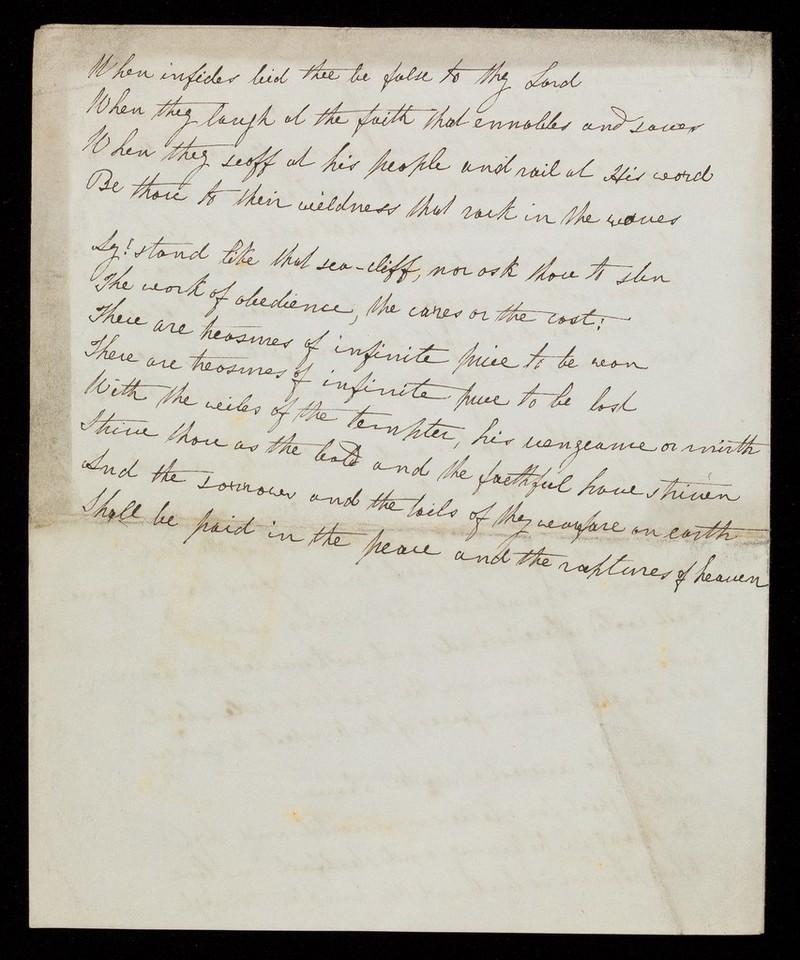 When infidels bid thee be false to thy Lord
When they laugh at the faith that ennobles and saves
When they scoff at his people and rail at His word
Be thou to their wildness that rock in the waves
Ay! stand like that sea-cliff, nor ask thou to shun
The work of obedience, the cares or the cost:
There are treasures of infinite price to be won
There are treasures of infinite price to be lost
With the wiles of the tempter, his vengeance or mirth
Strive thou as the bold and the faithful have striven
And the sorrows and the toils of thy warfare on earth
Shall be paid in the peace and the raptures of heaven